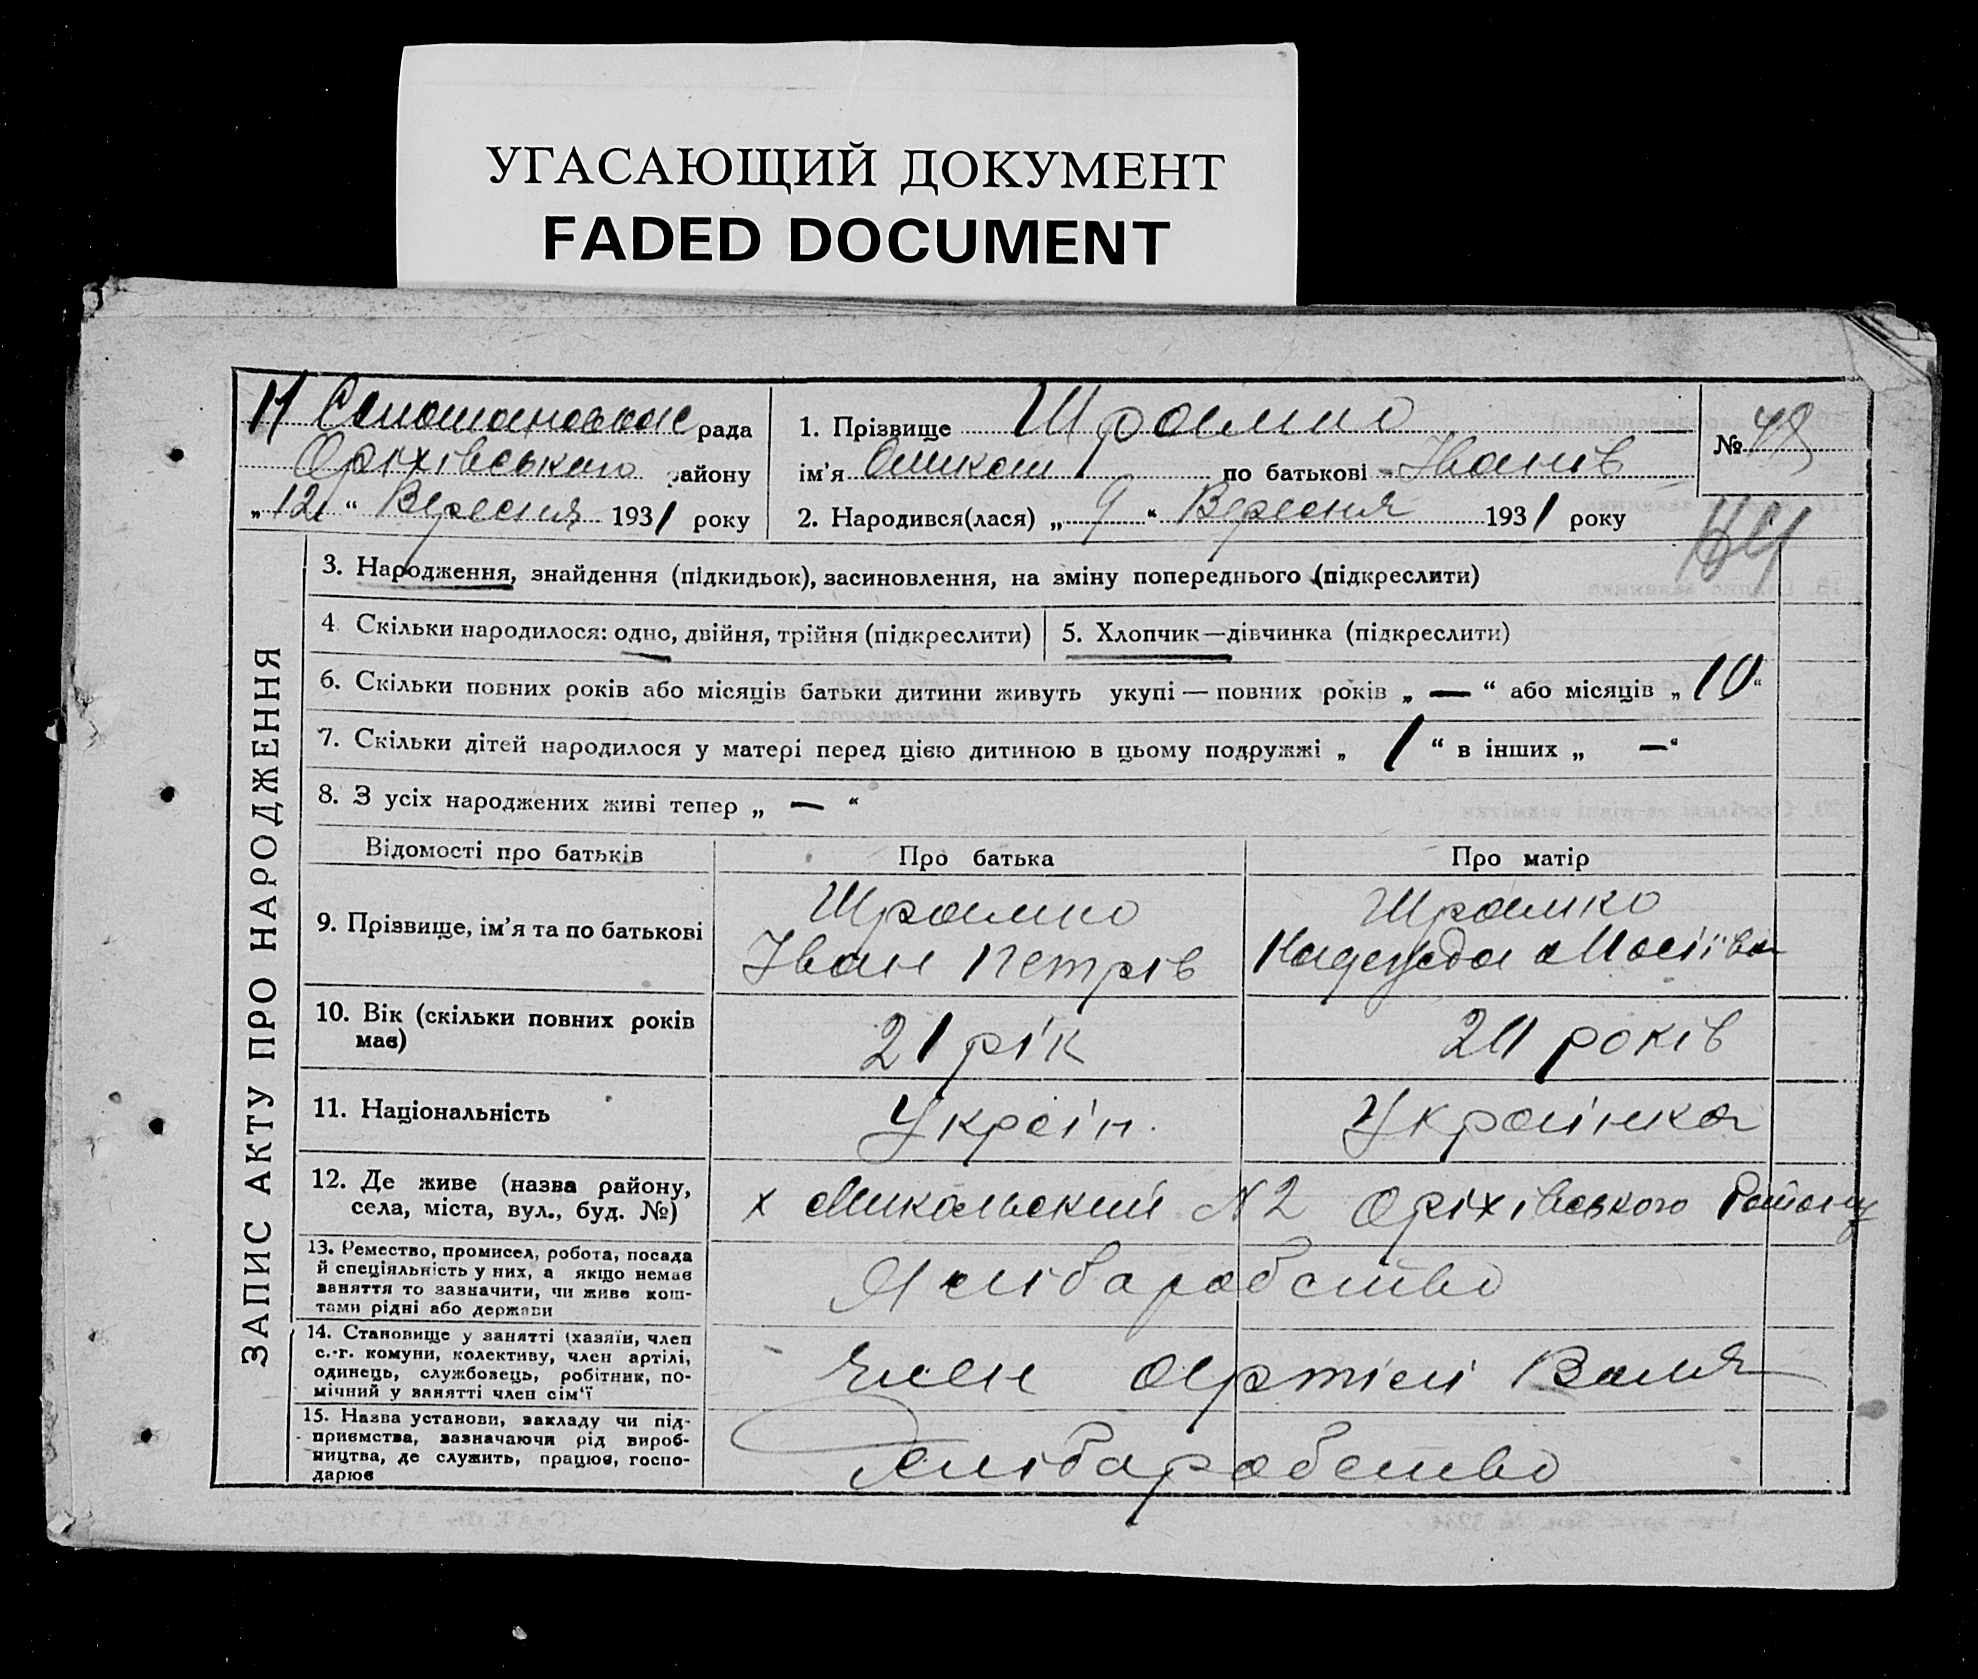 УГАСАЮЩИЙ ДОКУМЕНТ
FADED DOCUMENT
рада
Оріхівського району
„ 12 “ Вересня 1931 року
1. Прізвище Шрамко
ім'я по батькові Іванів
2. Народився(лася) „ 9 “ Вересня 1931 року
№
ЗАПИС АКТУ ПРО НАРОДЖЕННЯ
3. Народження, знайдення (підкидьок), засиновлення, на зміну попереднього (підкреслити)
4. Скільки народилося: одно, двійня, трійня (підкреслити)
5. Хлопчик—дівчинка (підкреслити)
6. Скільки повних років або місяців батьки дитини живуть укупі — повних років „ — “ або місяців „ 10 “
7. Скільки дітей народилося у матері перед цією дитиною в цьому подружжі „ 1 “ в інших „ — “
8. З усіх народжених живі тепер „ — “
Відомості про батьків
Про батька
Про матір
9. Прізвище, ім'я та по батькові
Шрамко
Іван Петрів
Шрамко
Надежда
10. Вік (скільки повних років
має)
21 рік
років
11. Національність
Україн.
Українка
12. Де живе (назва району,
села, міста, вул., буд. №)
х Микольский N 2 Оріхівського Району
13. Ремество, промисел, робота, посада
й спеціяльність у них, а якщо немає
заняття то зазначити, чи живе кош-
тами рідні або держави
14. Становище у занятті (хазяїн, член
с.-г. комуни, колективу, член артілі,
одинець, службовець, робітник, по-
мічний у занятті член сім'ї
член артілі
15. Назва установи, закладу чи під-
приємства, зазначаючи рід вироб-
ництва, де служить, працює, госпо-
дарює